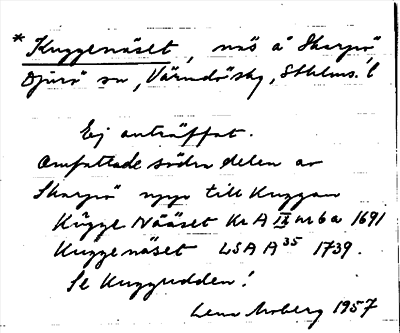 * Kuggenäset, näs å Skarpö
Djurö sn, Värmdö skg, Sthlms. l
Ej anträffat.
Omfattade södra delen av
Skarpö upp till Kuggan
Kügge Nääset Kr A IX nr 6a 1691
Kuggenäset LSA A 35 1739.
Se Kuggudden!
Moberg 1957